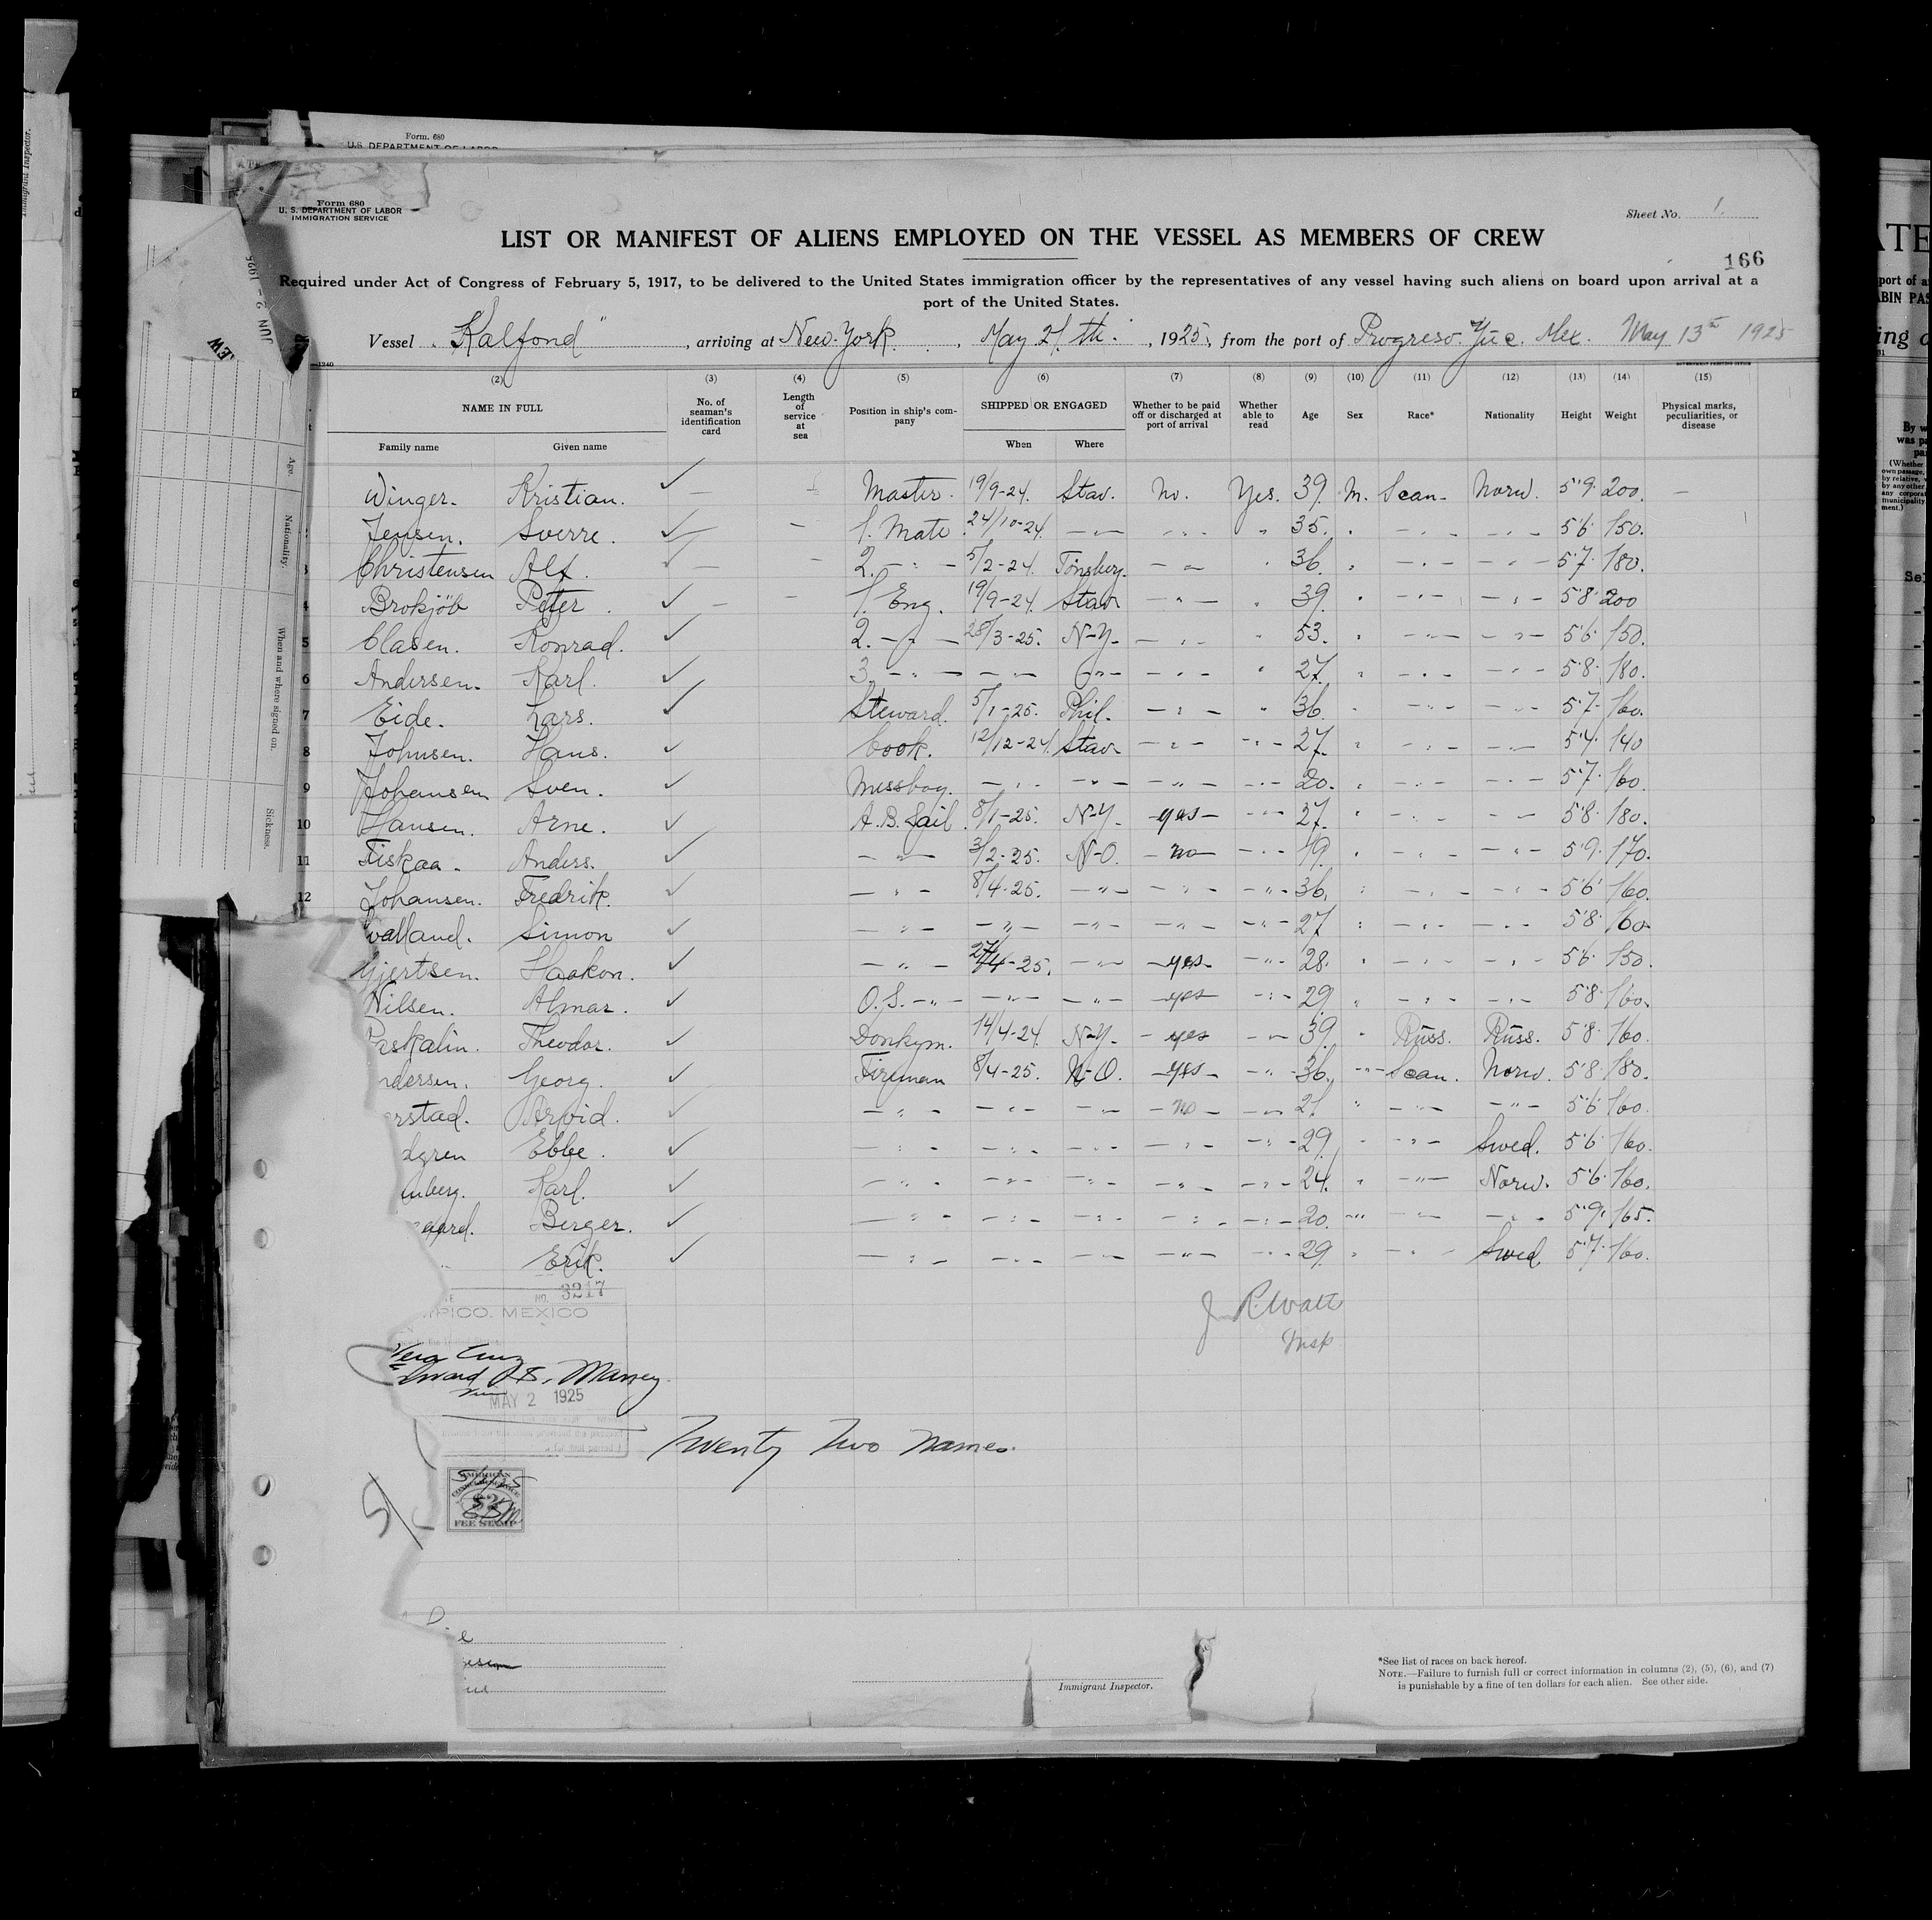 Form. 680
U.S. DEPARTMENT OF LABOR
Form 680
U. S. DEPARTMENT OF LABOR
IMMIGRATION SERVICE
Sheet No. 1.
LIST OR MANIFEST OF ALIENS EMPLOYED ON THE VESSEL AS MEMBERS OF CREW
166
Required under Act of Congress of February 5, 1917, to be delivered to the United States immigration officer by the representatives of any vessel having such aliens on board upon arrival at a
port of the United States.
Vessel "Kalfond", arriving at New-York, May 21.th., 1925, from the port of Progreso. Yuc. Mex. May 13th 1925
(2) (3) (4) (5) (6) (7) (8) (9) (10) (11) (12) (13) (14) (15)
NAME IN FULL No. of seaman's identification card Length of service at sea Position in ship's company SHIPPED OR ENGAGED Whether to be paid off or discharged at port of arrival Whether able to read Age Sex Race* Nationality Height Weight Physical marks, peculiarities, or disease
Family name Given name When Where
Winger. Kristian. ✓ — Master. 19/9-24. Stav. No. Yes. 39. M. Scan. Norw. 5'9. 200. —
Jensen. Sverre. ✓ — — 1. Mate. 24/10-24. — " — — " — " 35. " — " — — " — 5'6 150.
3 Christensen Alf. ✓ — — 2. — " — 5/2-24. Tönsberg. — " — " 36. " — " — — " — 5'7. 180.
4 Brokjöb Petter. ✓ — — 1. Eng. 19/9-24. Stav. — " — " 39. " — " — — " — 5'8. 200
5 Clasen. Konrad. ✓ 2. — " — 28/3-25. N-Y. — " — " 53. " — " — — " — 5'6. 150.
6 Andersen. Karl. ✓ 3. — " — — " — — " — — " — " 27. " — " — — " — 5'8. 180.
7 Eide. Lars. ✓ Steward. 5/1-25. Phil. — " — " 36. " — " — — " — 5'7. 160.
8 Johnsen. Hans. ✓ Cook. 12/12-24. Stav. — " — — " — 27. " — " — — " — 5'4. 140
9 Johansen Sven. ✓ Messboy. — " — — " — — " — — " — 20. " — " — — " — 5'7. 160.
10 Hansen. Arne. ✓ A.B. Sail. 8/1-25. N-Y. yes — " — 27. " — " — — " — 5'8. 180.
11 Fiskaa. Anders. ✓ — " — 3/2-25. N-O. no — " — 19. " — " — — " — 5'9. 170.
12 Johansen. Fredrik. ✓ — " — 8/4-25. — " — — " — — " — 36. " — " — — " — 5'6' 160.
valland. Simon ✓ — " — — " — — " — — " — — " — 27 " — " — — " — 5'8. 160.
Gjertsen. Haakon. ✓ — " — 27/4-25. — " — yes — " — 28. " — " — — " — 5'6. 150.
Nilsen. Almar. ✓ O.S. — " — — " — — " — yes — " — 29. " — " — — " — 5'8. 160.
Paskalin. Theodor. ✓ Donkym. 14/4-24. N-Y. yes — " — 39. " Russ. Russ. 5'8. 160.
ndersen. Georg. ✓ Fireman 8/4-25. N-O. yes — " — 36. — " — Scan. Norw. 5'8. 180.
rstad. Arvid. ✓ — " — — " — — " — no — " — 21. " — " — — " — 5'6 160.
dgren Ebbe. ✓ — " — — " — — " — — " — — " — 29. " — " — Swed. 5'6. 160.
nberg. Karl. ✓ — " — — " — — " — — " — — " — 24. " — " — Norw. 5'6. 160.
gaard. Berger. ✓ — " — — " — — " — — " — — " — 20. " — " — — " — 5'9. 165.
Erik. ✓ — " — — " — — " — — " — — " — 29. " — " — Swed. 5'7. 160.
NO. 3217
PICO, MEXICO
J R. Watt
Insp
Vera Cruz
MAY 2 1925
Twenty Two names.
AMERICAN
FEE STAMP
Immigrant Inspector.
*See list of races on back hereof.
NOTE.—Failure to furnish full or correct information in columns (2), (5), (6), and (7)
is punishable by a fine of ten dollars for each alien. See other side.
JUN 2 - 1925
Age.
Nationality
When and where signed on.
Sickness.
Immigrant Inspector.